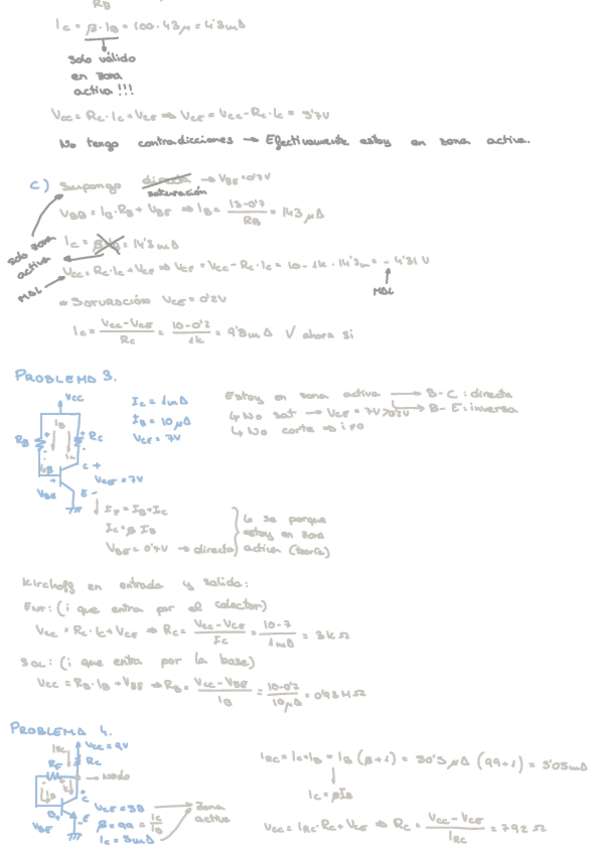 RB
Ic = β·IB = 100·43μ = 4'3mA
Solo válido
en zona
activa !!!
Vcc = Rc·Ic+VCE ⇒ VCE = Vcc-Rc·Ic = 5'7V
No tengo contradicciones → Efectivamente estoy en zona activa.
c) Supongo directa → VBE=0'7V
saturación
VBB = IB·RB + VBE ⇒ IB = (15-0'7)/RB = 143 μA
Ic = β·IB = 14'3 mA
solo zona
activa
Vcc = Rc·Ic+VCE ⇒ VCE = Vcc-Rc·Ic = 10-1k·14'3m = -4'31 V
MAL
MAL
* SATURACIÓN VCE = 0'2V
Ic = (Vcc-VCE)/Rc = (10-0'2)/1k = 9'8mA V ahora si
PROBLEMA 3.
Vcc
Ic = 1mA
IB = 10 μA
VCE = 7V
Estoy en zona activa → B-C: directa
→ B-E: inversa
↳ No sat → VCE = 7V>0'2V
↳ No corte → i>0
RB
IB
Rc
B
C
VBE
E
VCE = 7V
IE = IB+Ic
Ic = β IB
VBE = 0'7V → directo
↳ se porque
estoy en zona
activa (teoría)
Kirchoff en entrada y salida:
Ent: (i que entra por el colector)
Vcc = Rc·Ic+VCE ⇒ Rc = (Vcc-VCE)/Ic = (10-7)/1mA = 3kΩ
Sal: (i que entra por la base)
Vcc = RB·IB + VBE ⇒ RB = (Vcc-VBE)/IB = (10-0'2)/10μA = 0'93MΩ
PROBLEMA 4.
IRC
Vcc = 9V
RF
Rc
→ nodo
IB
C
B
E
VBE
VCE = 5V
β = 99 = Ic/IB
Ic = 5mA
Zona
activa
IRC = Ic+IB = IB (β+1) = 50'5 μA (99+1) = 5'05mA
Ic = βIB
Vcc = IRC·Rc+VCE ⇒ Rc = (Vcc-VCE)/IRC = 792 Ω